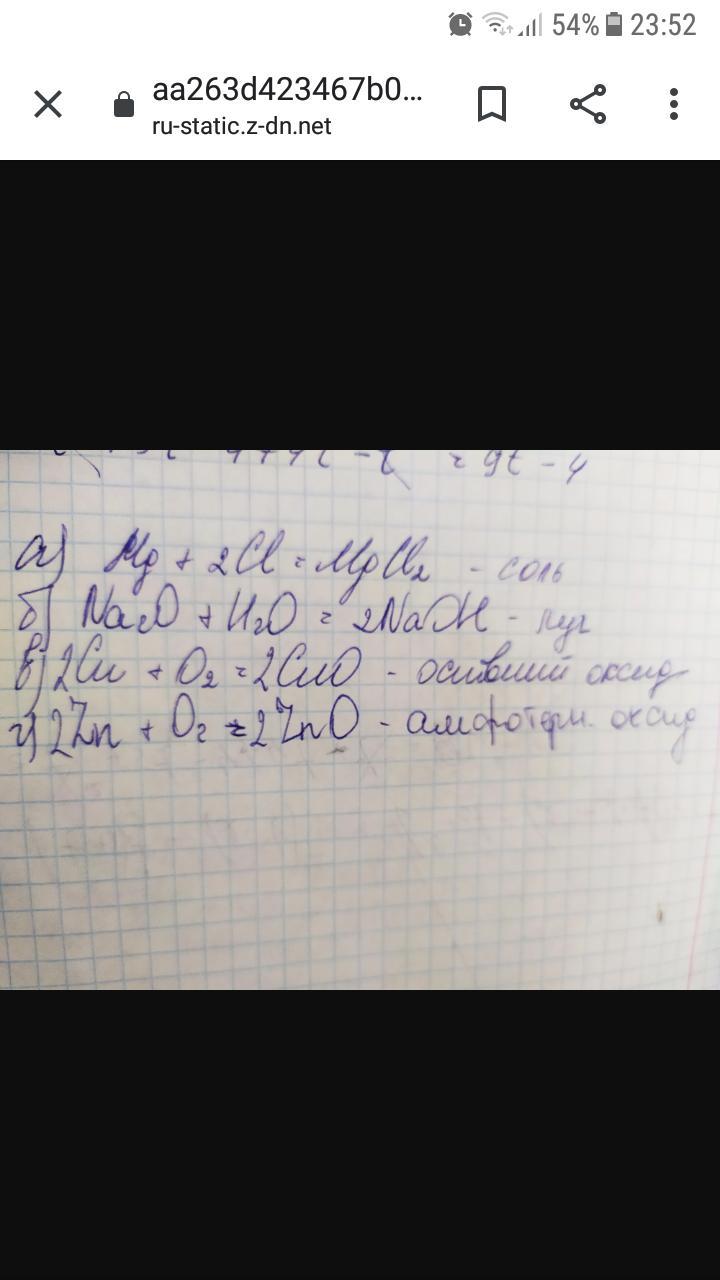 54% 23:52
aa263d423467b0...
ru-static.z-dn.net
= 9t - 4
а) Mg + 2Cl = MgCl₂ - соль
б) Na₂O + H₂O = 2NaOH - луг
в) 2Cu + O₂ = 2CuO - оксид
г) 2Zn + O₂ = 2ZnO - амфотерн. оксид